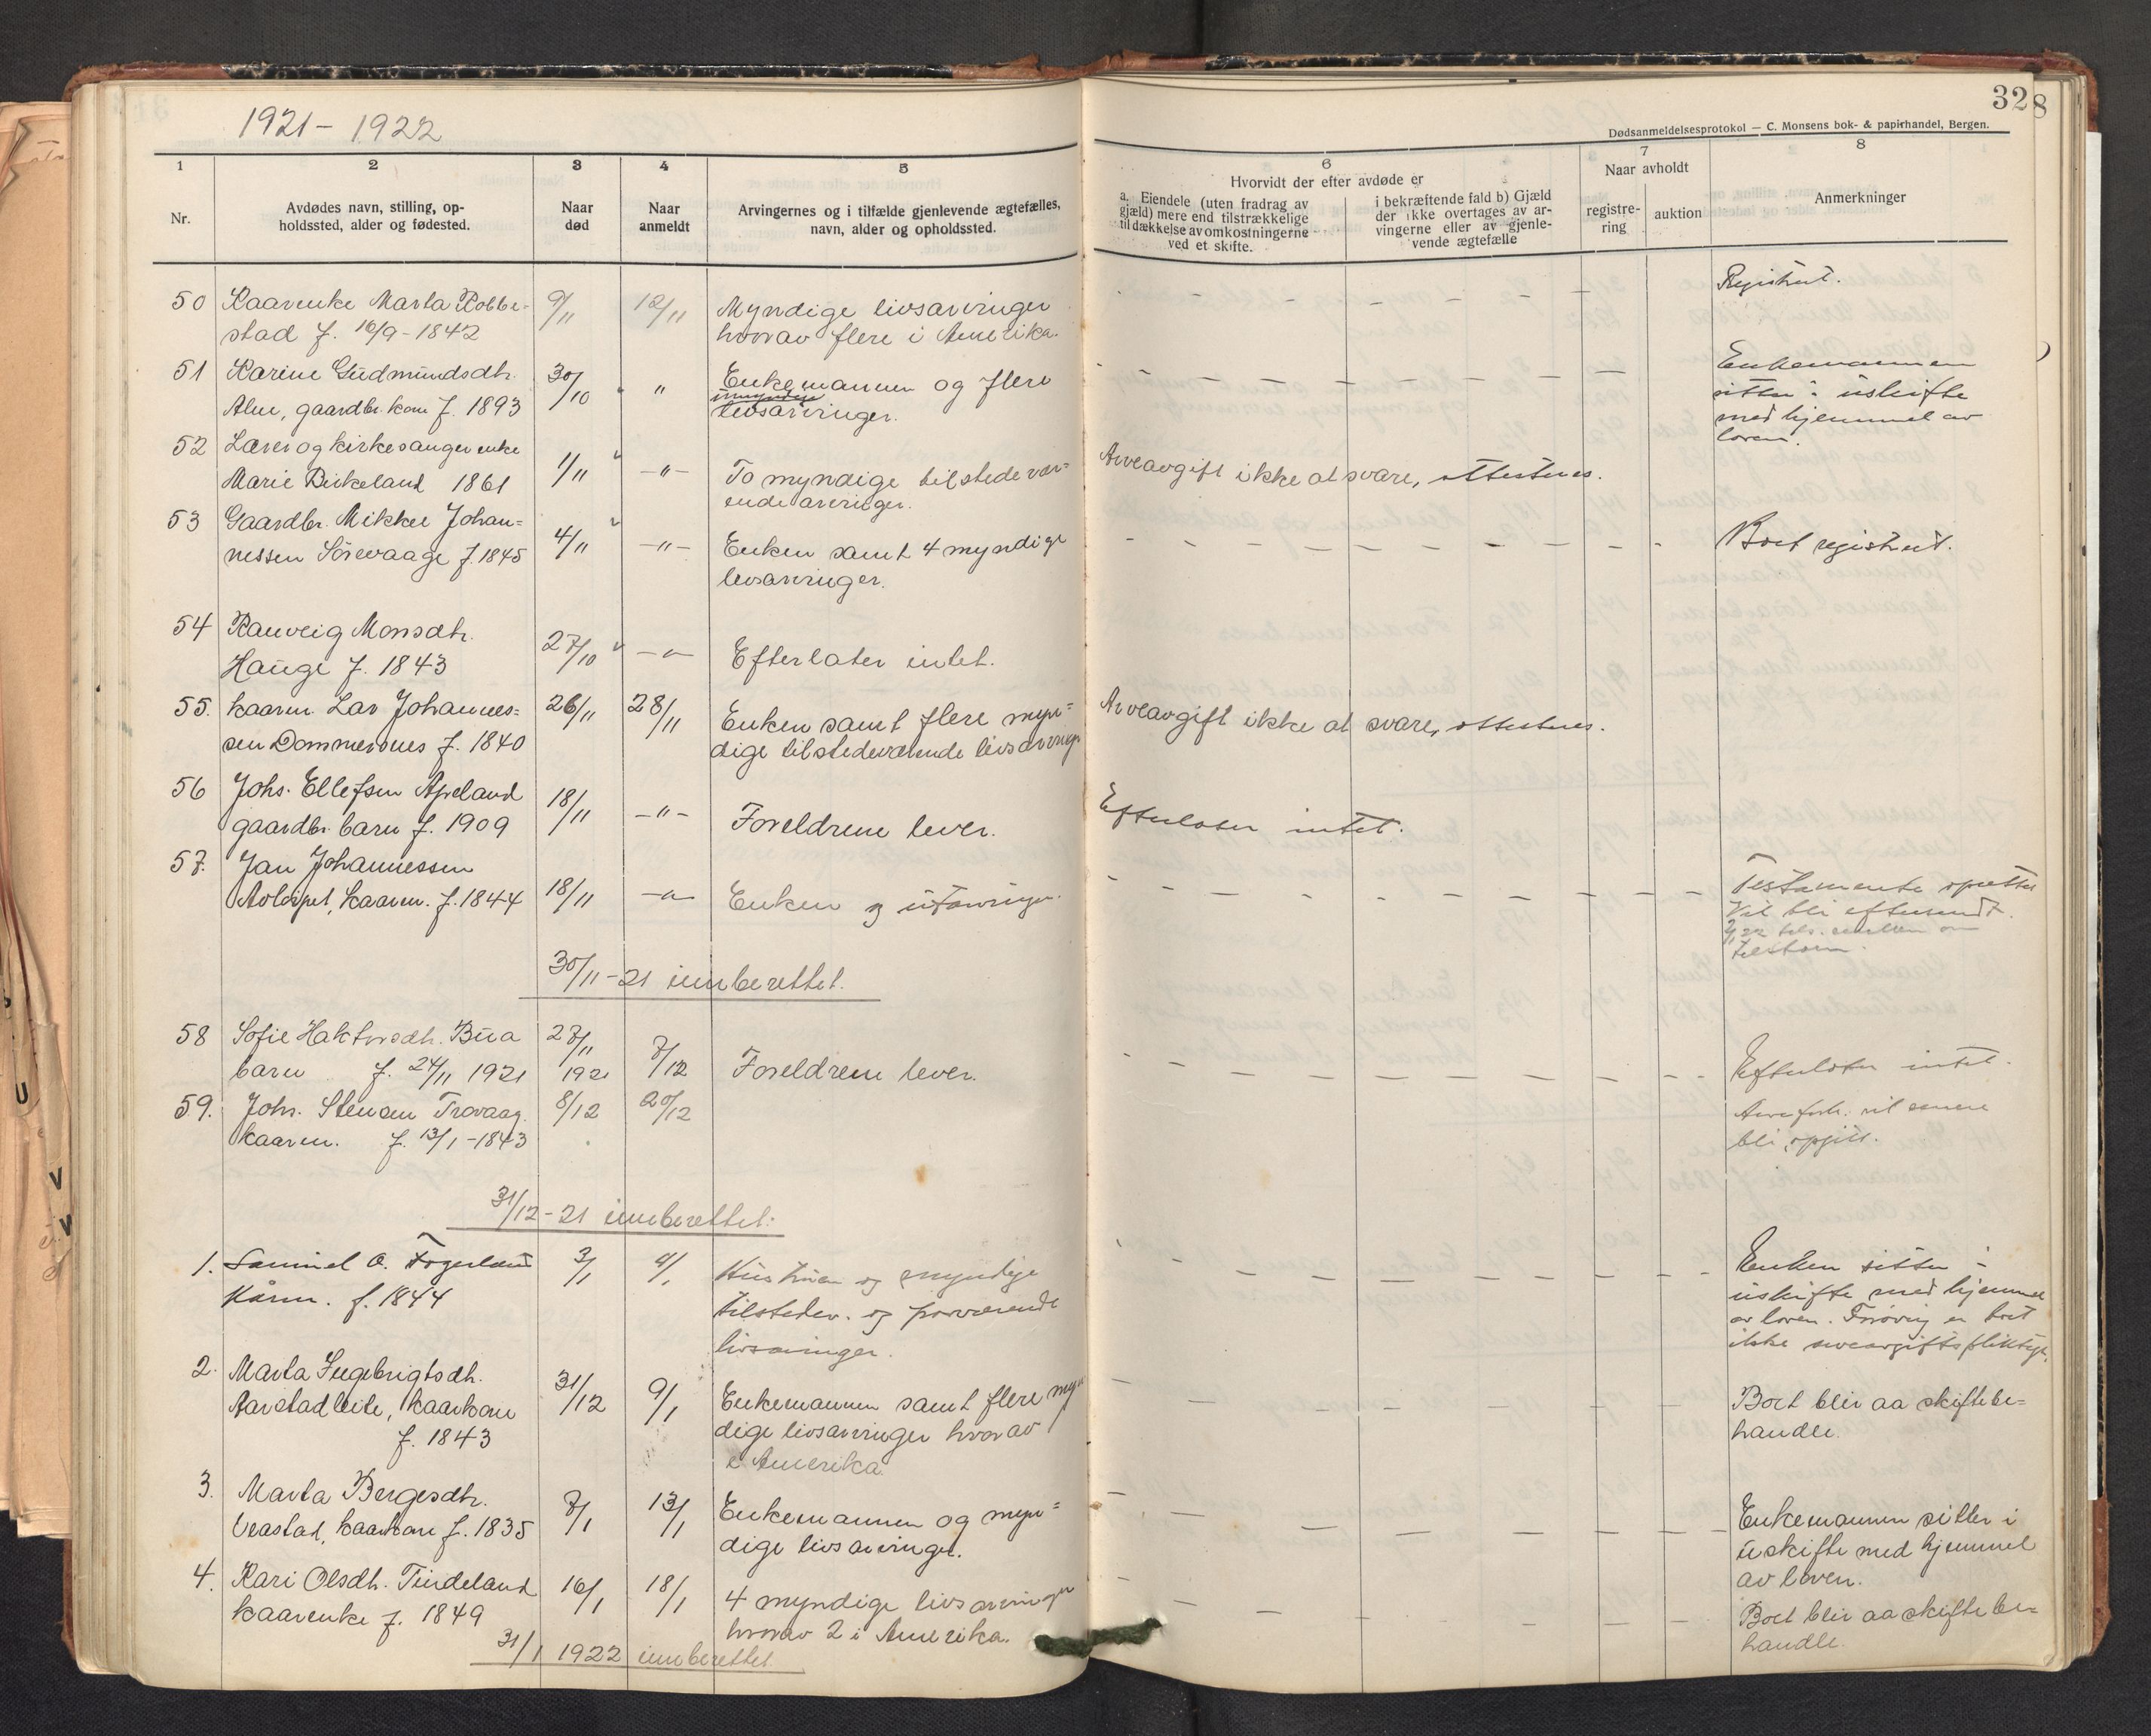 1921-1922
32
8
Dødsanmeldelsesprotokol — C. Monsens bok- & papirhandel, Bergen.
1
Nr.
2
Avdødes navn, stilling, op-
holdssted, alder og fødested.
3
Naar
død
4
Naar
anmeldt
5
Arvingernes og i tilfælde gjenlevende ægtefælles,
navn, alder og opholdssted.
6
Hvorvidt der efter avdøde er
a. Eiendele (uten fradrag av
gjæld) mere end tilstrækkelige
til dækkelse av omkostningerne
ved et skifte.
i bekræftende fald b) Gjæld
der ikke overtages av ar-
vingerne eller av gjenle-
vende ægtefælle
7
Naar avholdt
registre-
ring
auktion
8
Anmerkninger
50 Kaarenke Marta Robbe-
stad f. 16/9-1842
9/11 12/11
Myndige livsarvinger
hvorav flere i Amerika.
Registrert.
51 Karine Gudmundsdtr.
Alne, gaardbr. kone f. 1893
30/10 "
Enkemannen og flere
umyndige
livsarvinger.
Enkemannen
sitter i uskifte
med hjemmel av
loven.
52 Lærer og kirkesanger enke
Marie Birkeland 1861
1/11 -"-
To myndige tilstedevær=
ende arvinger.
Arveavgift ikke at svare, attesteres.
53 Gaardbr. Mikkel Johan=
nessen Sørevaage f. 1845
4/11 -"-
Enken samt 4 myndige
livsarvinger.
Boet registrert.
54 Ranveig Monsdtr.
Hauge f. 1843
27/10 -"-
Efterlater intet.
55. Kaarm. Lar Johannes=
sen Dommersnes f. 1840
26/11 28/11
Enken samt flere myn=
dige tilstedeværende livsarvinger
Arveavgift ikke at svare, attesteres.
56 Johs. Ellefsen Apeland
gaardbr. barn f. 1909
18/11 -"-
Foreldrene lever.
Efterlater intet.
57. Jan Johannessen
kaarm. f. 1844
18/11 -"-
Enken og utarvinger.
Testamente oprettet
Vil bli eftersendt.
30/11-21 innberettet.
58 Sofie Haktorsdtr. Bua
barn f. 24/11 1921
27/11 1921 7/12
Foreldrene lever.
Efterlater intet.
59. Johs. Stensen Trovaag
kaarm. f. 13/1-1843
8/12 20/12
Arveforh. vil senere
bli opgitt.
31/12-21 innberettet.
1. Samuel O. Fogerland
Kårm. f. 1844
3/1 4/1
Hustruen og myndige
tilstedev. og fraværende
livsarvinger.
Enken sitter i
uskifte med hjemmel
av loven. Forøvrig er boet
ikke arveavgiftspliktig.
2. Marta Ingebrigtsdtr.
Aarstadleite, kaarkone
f. 1843
31/12 9/1
Enkemannen samt flere myn
dige livsarvinger hvorav 1
i Amerika.
Boet blir aa skiftebe=
handle.
3. Marta Bergesdtr.
Veastad, kaarkone f. 1835
7/1 13/1
Enkemannen og myn=
dige livsarvinger.
Enkemannen sitter i
uskifte med hjemmel
av loven.
4. Kari Olsdtr. Tindeland
kaarenke f. 1849
16/1 18/1
4 myndige livsarvinger
hvorav 2 i Amerika.
Boet blir aa skiftebe=
handle.
31/1 1922 innberettet.